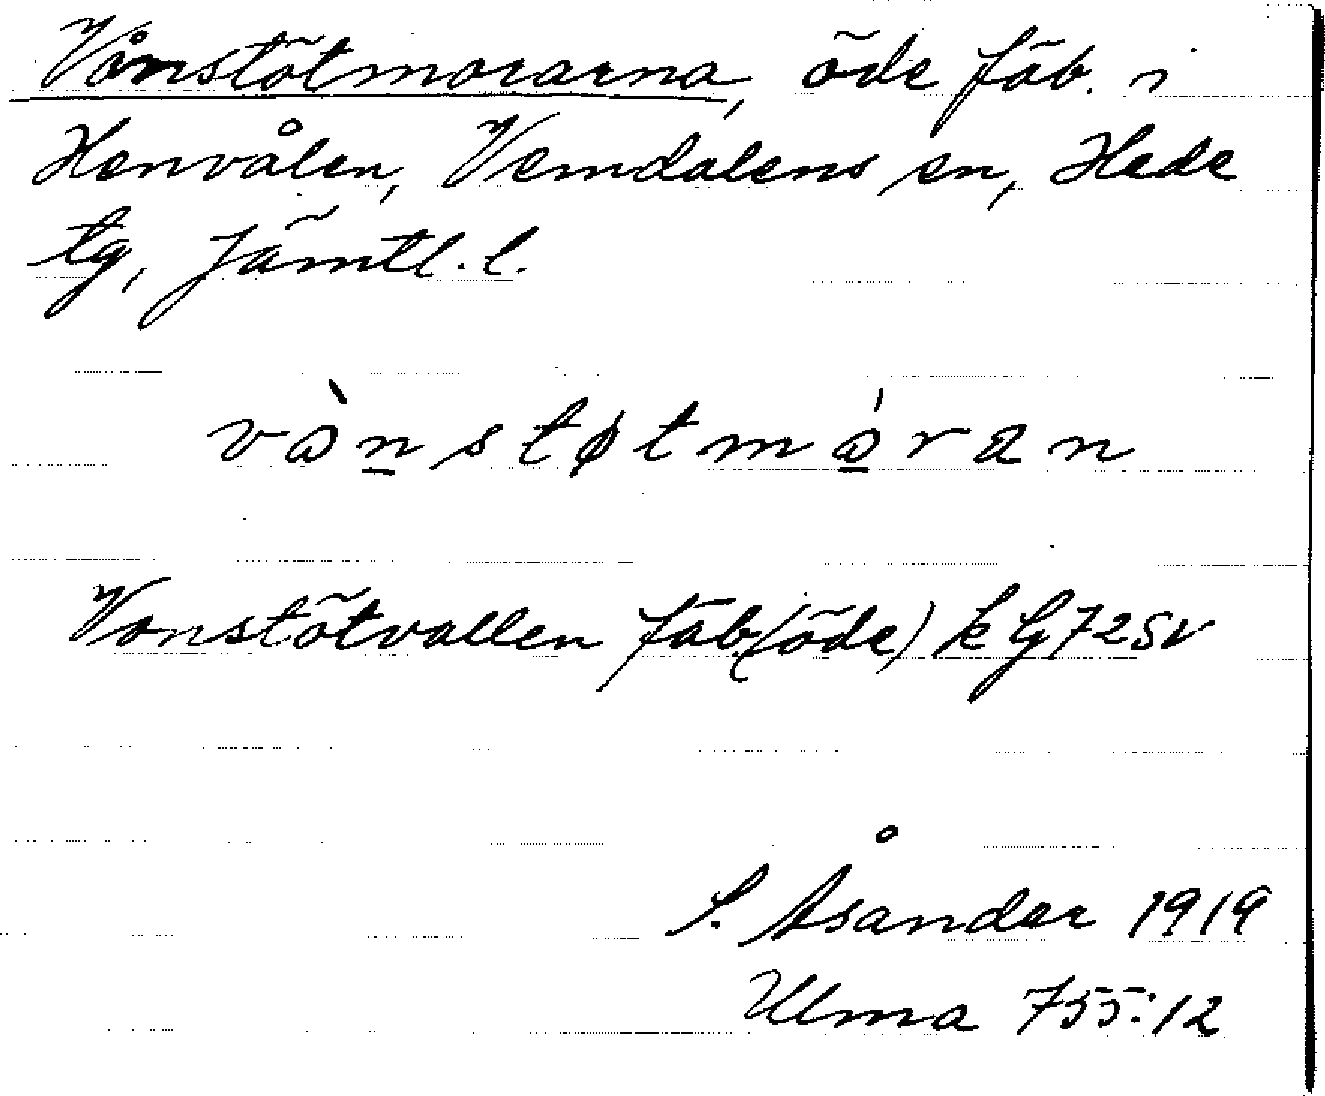 Vånstötmorarna, öde fäb. i
Henvålen, Vemdalens sn, Hede
tg, Jämtl. l.
vànstøtmóran
Vonstötvallen fäb (öde) k G 72 SV
S. Åsander 1919
Ulma 755:12